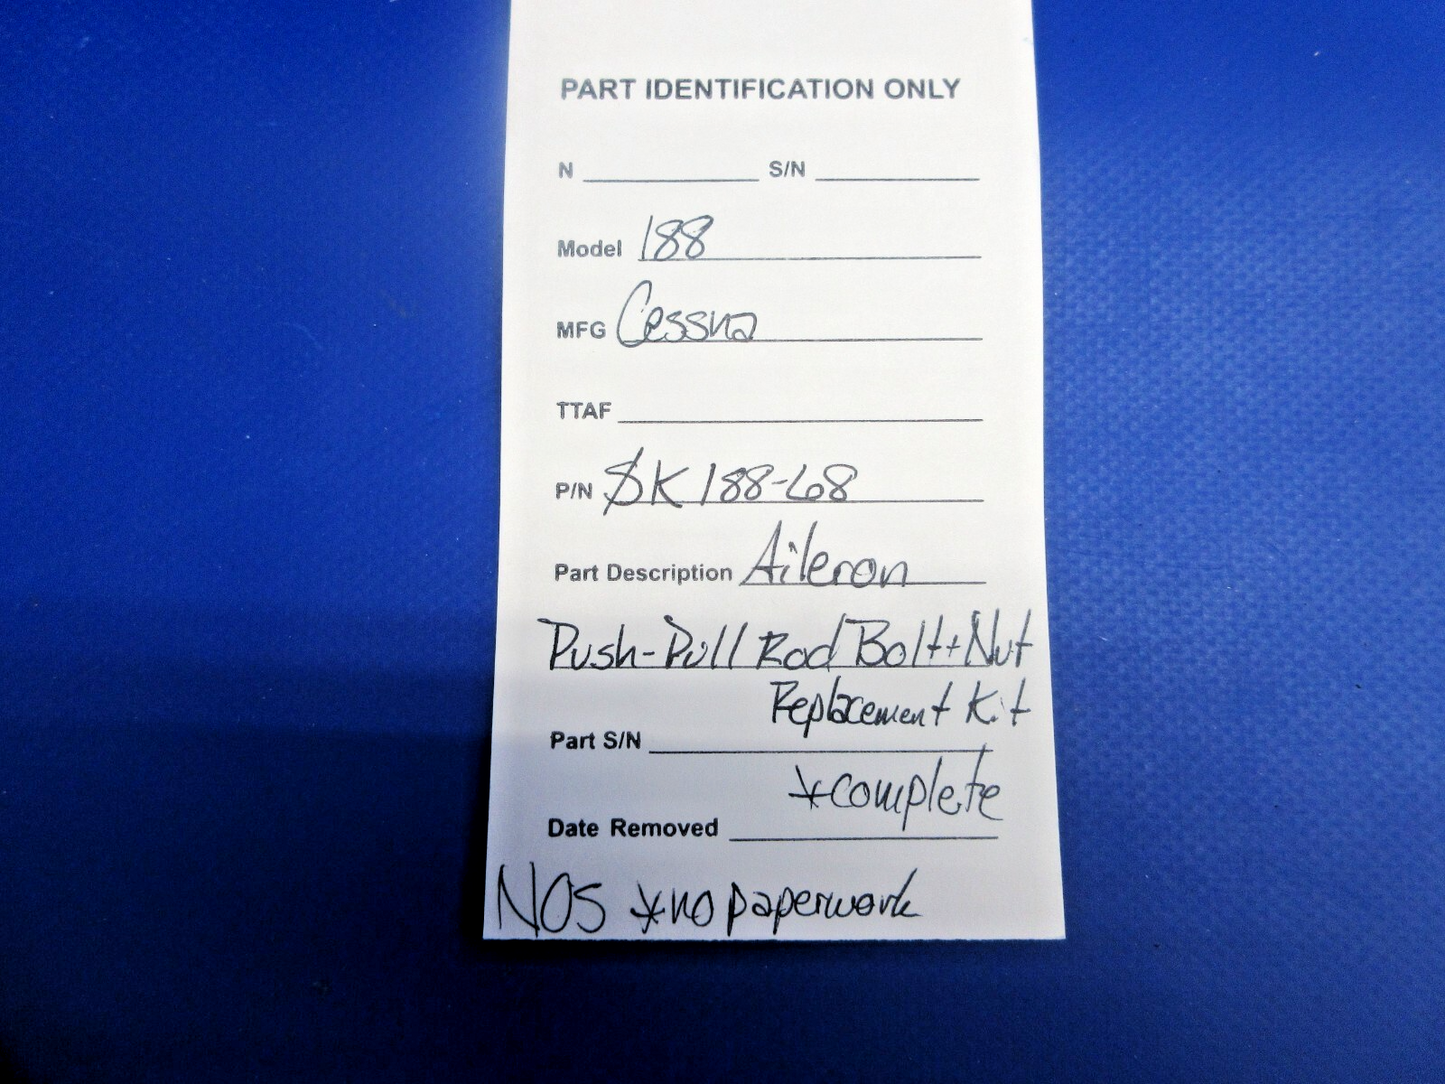 PART IDENTIFICATION ONLY
N S/N
Model 188
MFG Cessna
TTAF
P/N SK188-68
Part Description Aileron
Push-Pull Rod Bolt+Nut
Replacement Kit
Part S/N
*complete
Date Removed
NOS *no paperwork